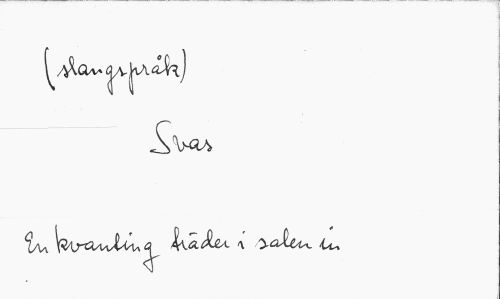 (slangspråk)
Svas
En kvanting träder i salen in